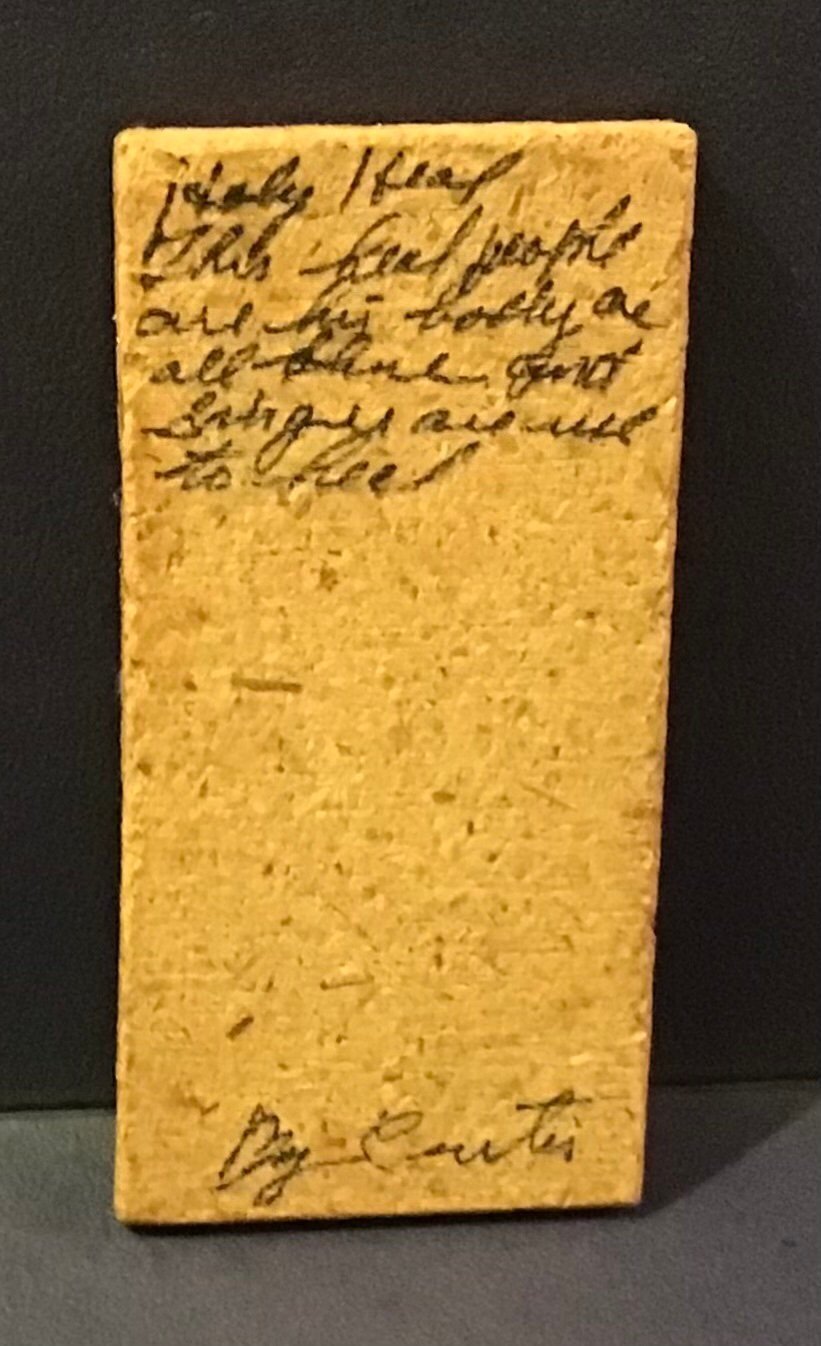 Holy Heal
This heal people
are his body are
all
are use
to heal
By Curtis